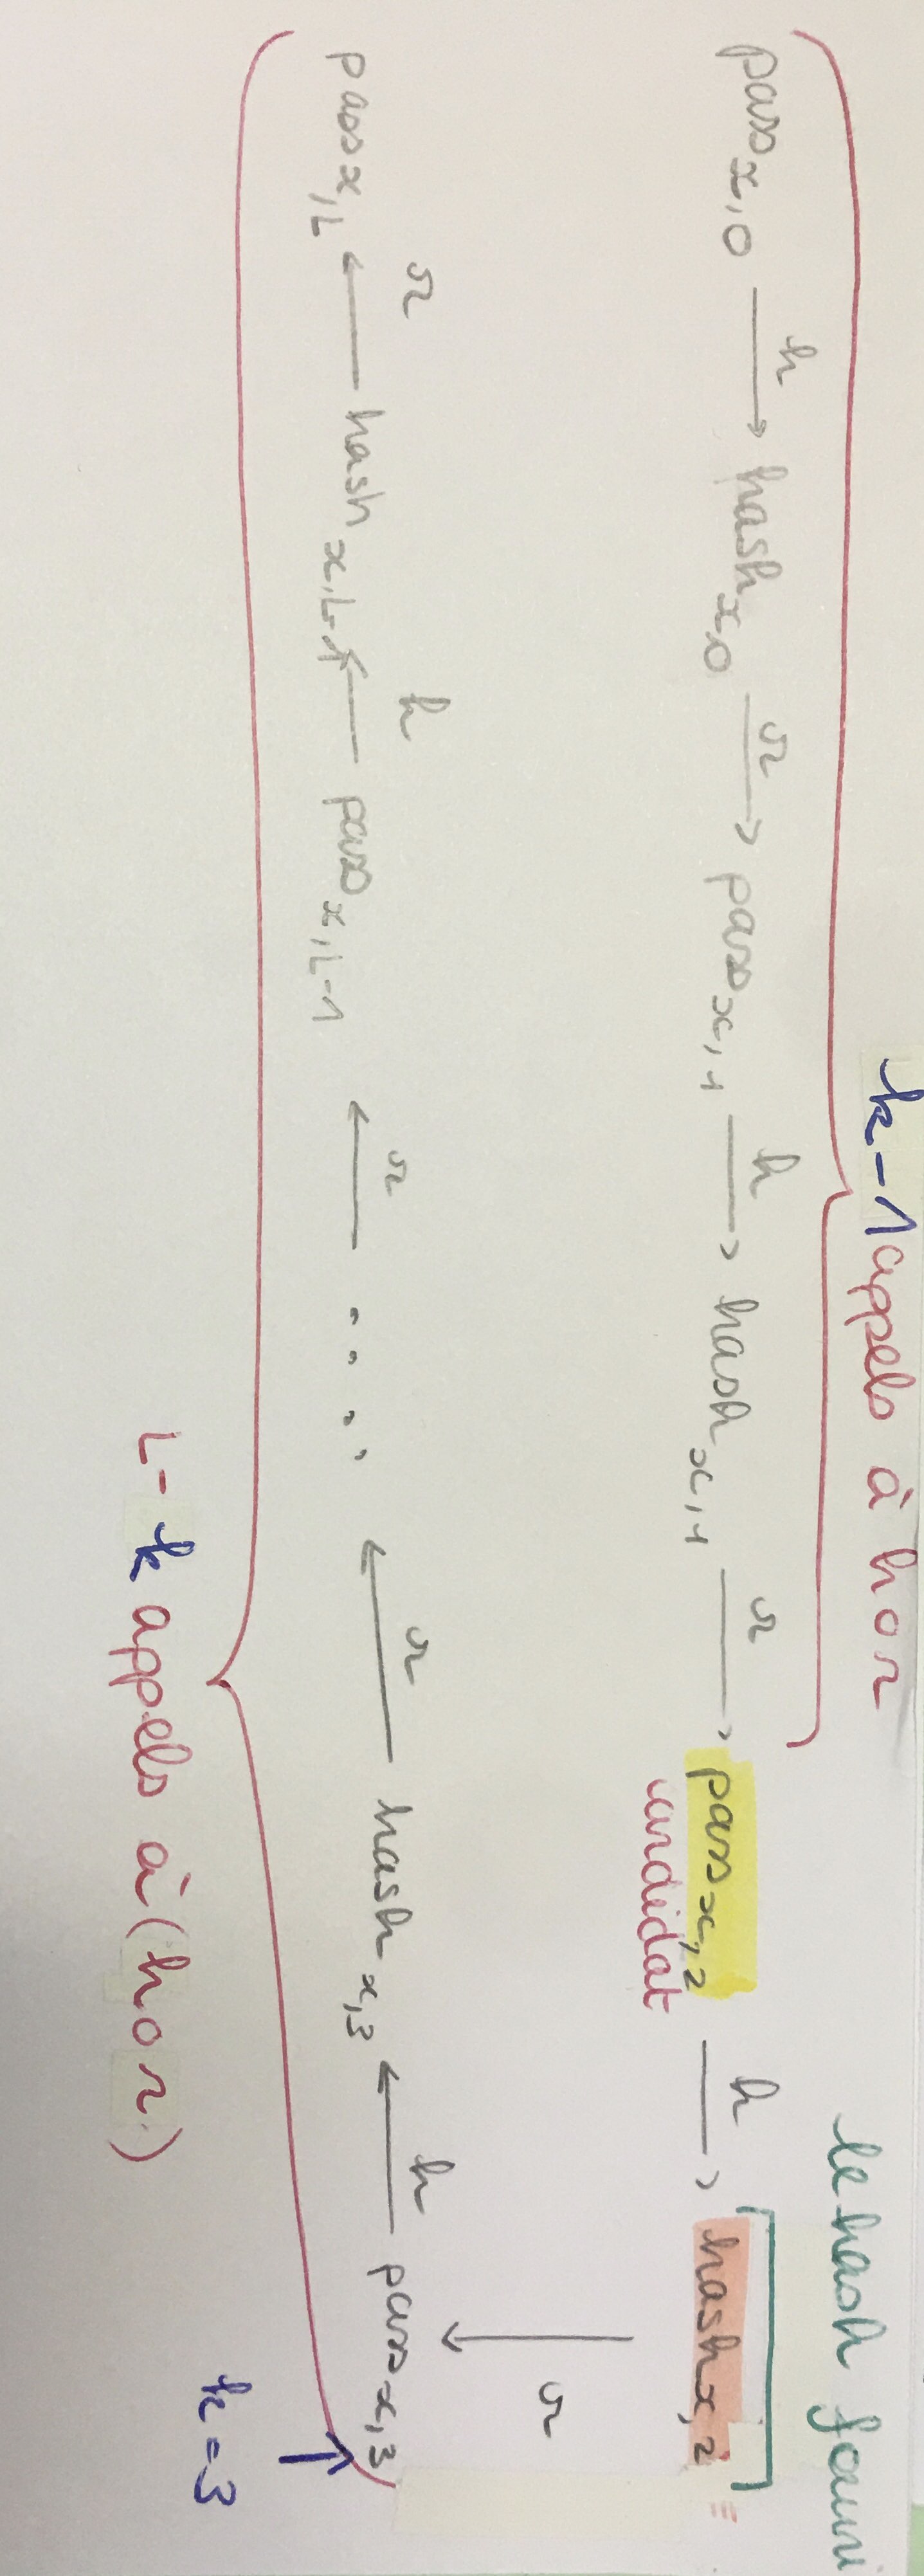 k-1 appels à h o r
le hash fourni
h r h r h
pass x,0 → hash x,0 → pass x,1 → hash x,1 → pass x,2 → hash x,2 =
candidat
r
r h r r h
pass x,L ← hash x,L-1 ← pass x,L-1 ← .... ← hash x,3 ← pass x,3
k = 3
L- k appels à (h o r)